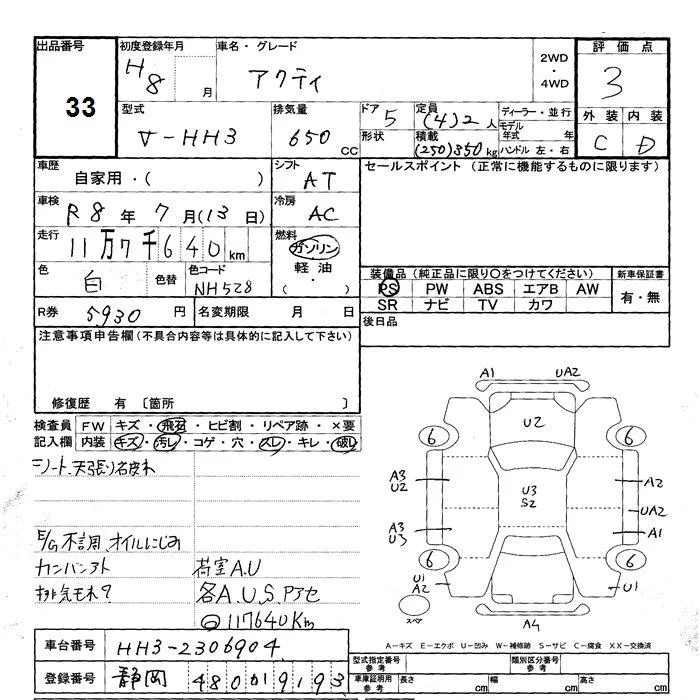 出品番号
33
初度登録年月
H8 月
車名・グレード
アクティ
2WD
・
4WD
評価点
3
外装 内装
C D
型式
V-HH3
排気量
650 CC
ドア 5
形状
定員 (4)2 人
積載 (250)350 kg
ディーラー・並行
モデル年式 年
ハンドル 左・右
車歴
自家用・( )
シフト
AT
セールスポイント (正常に機能するものに限ります)
車検
R8年 7月(13日)
冷房
AC
走行
11万7千640km
燃料
ガソリン
軽油
・( )
色
白
色替
色コード
NH528
装備品 (純正品に限り○をつけてください)
PS PW ABS エアB AW
SR ナビ TV カワ
新車保証書
有・無
R券 5930円
名変期限 月 日
後日品
注意事項申告欄(不具合内容等は具体的に記入して下さい)
修復歴 有 〔箇所 〕
検査員記入欄
FW キズ・飛石・ヒビ割・リペア跡・×要
内装 キズ・汚レ・コゲ・穴・スレ・キレ・破レ
シート、天張り名皮木
E/G不調、オイルにじみ
カンバンアト
排気モレ?
荷室A.U
各A.U.S.Pアセ
◎117640Km
A1 UA2
U2
6 6
A3
U2
U3
S2
A2
UA2
A3
U3
A1
6 6
U1
A2
U1
スペア
A4
A-キズ E-エクボ U-凹み W-補修跡 S-サビ C-腐食 XX-交換済
車台番号
HH3-2306904
登録番号
静岡 480か9193
型式指定番号 参考
類別区分番号 参考
車庫証明用 参考
長さ cm
幅 cm
高さ cm